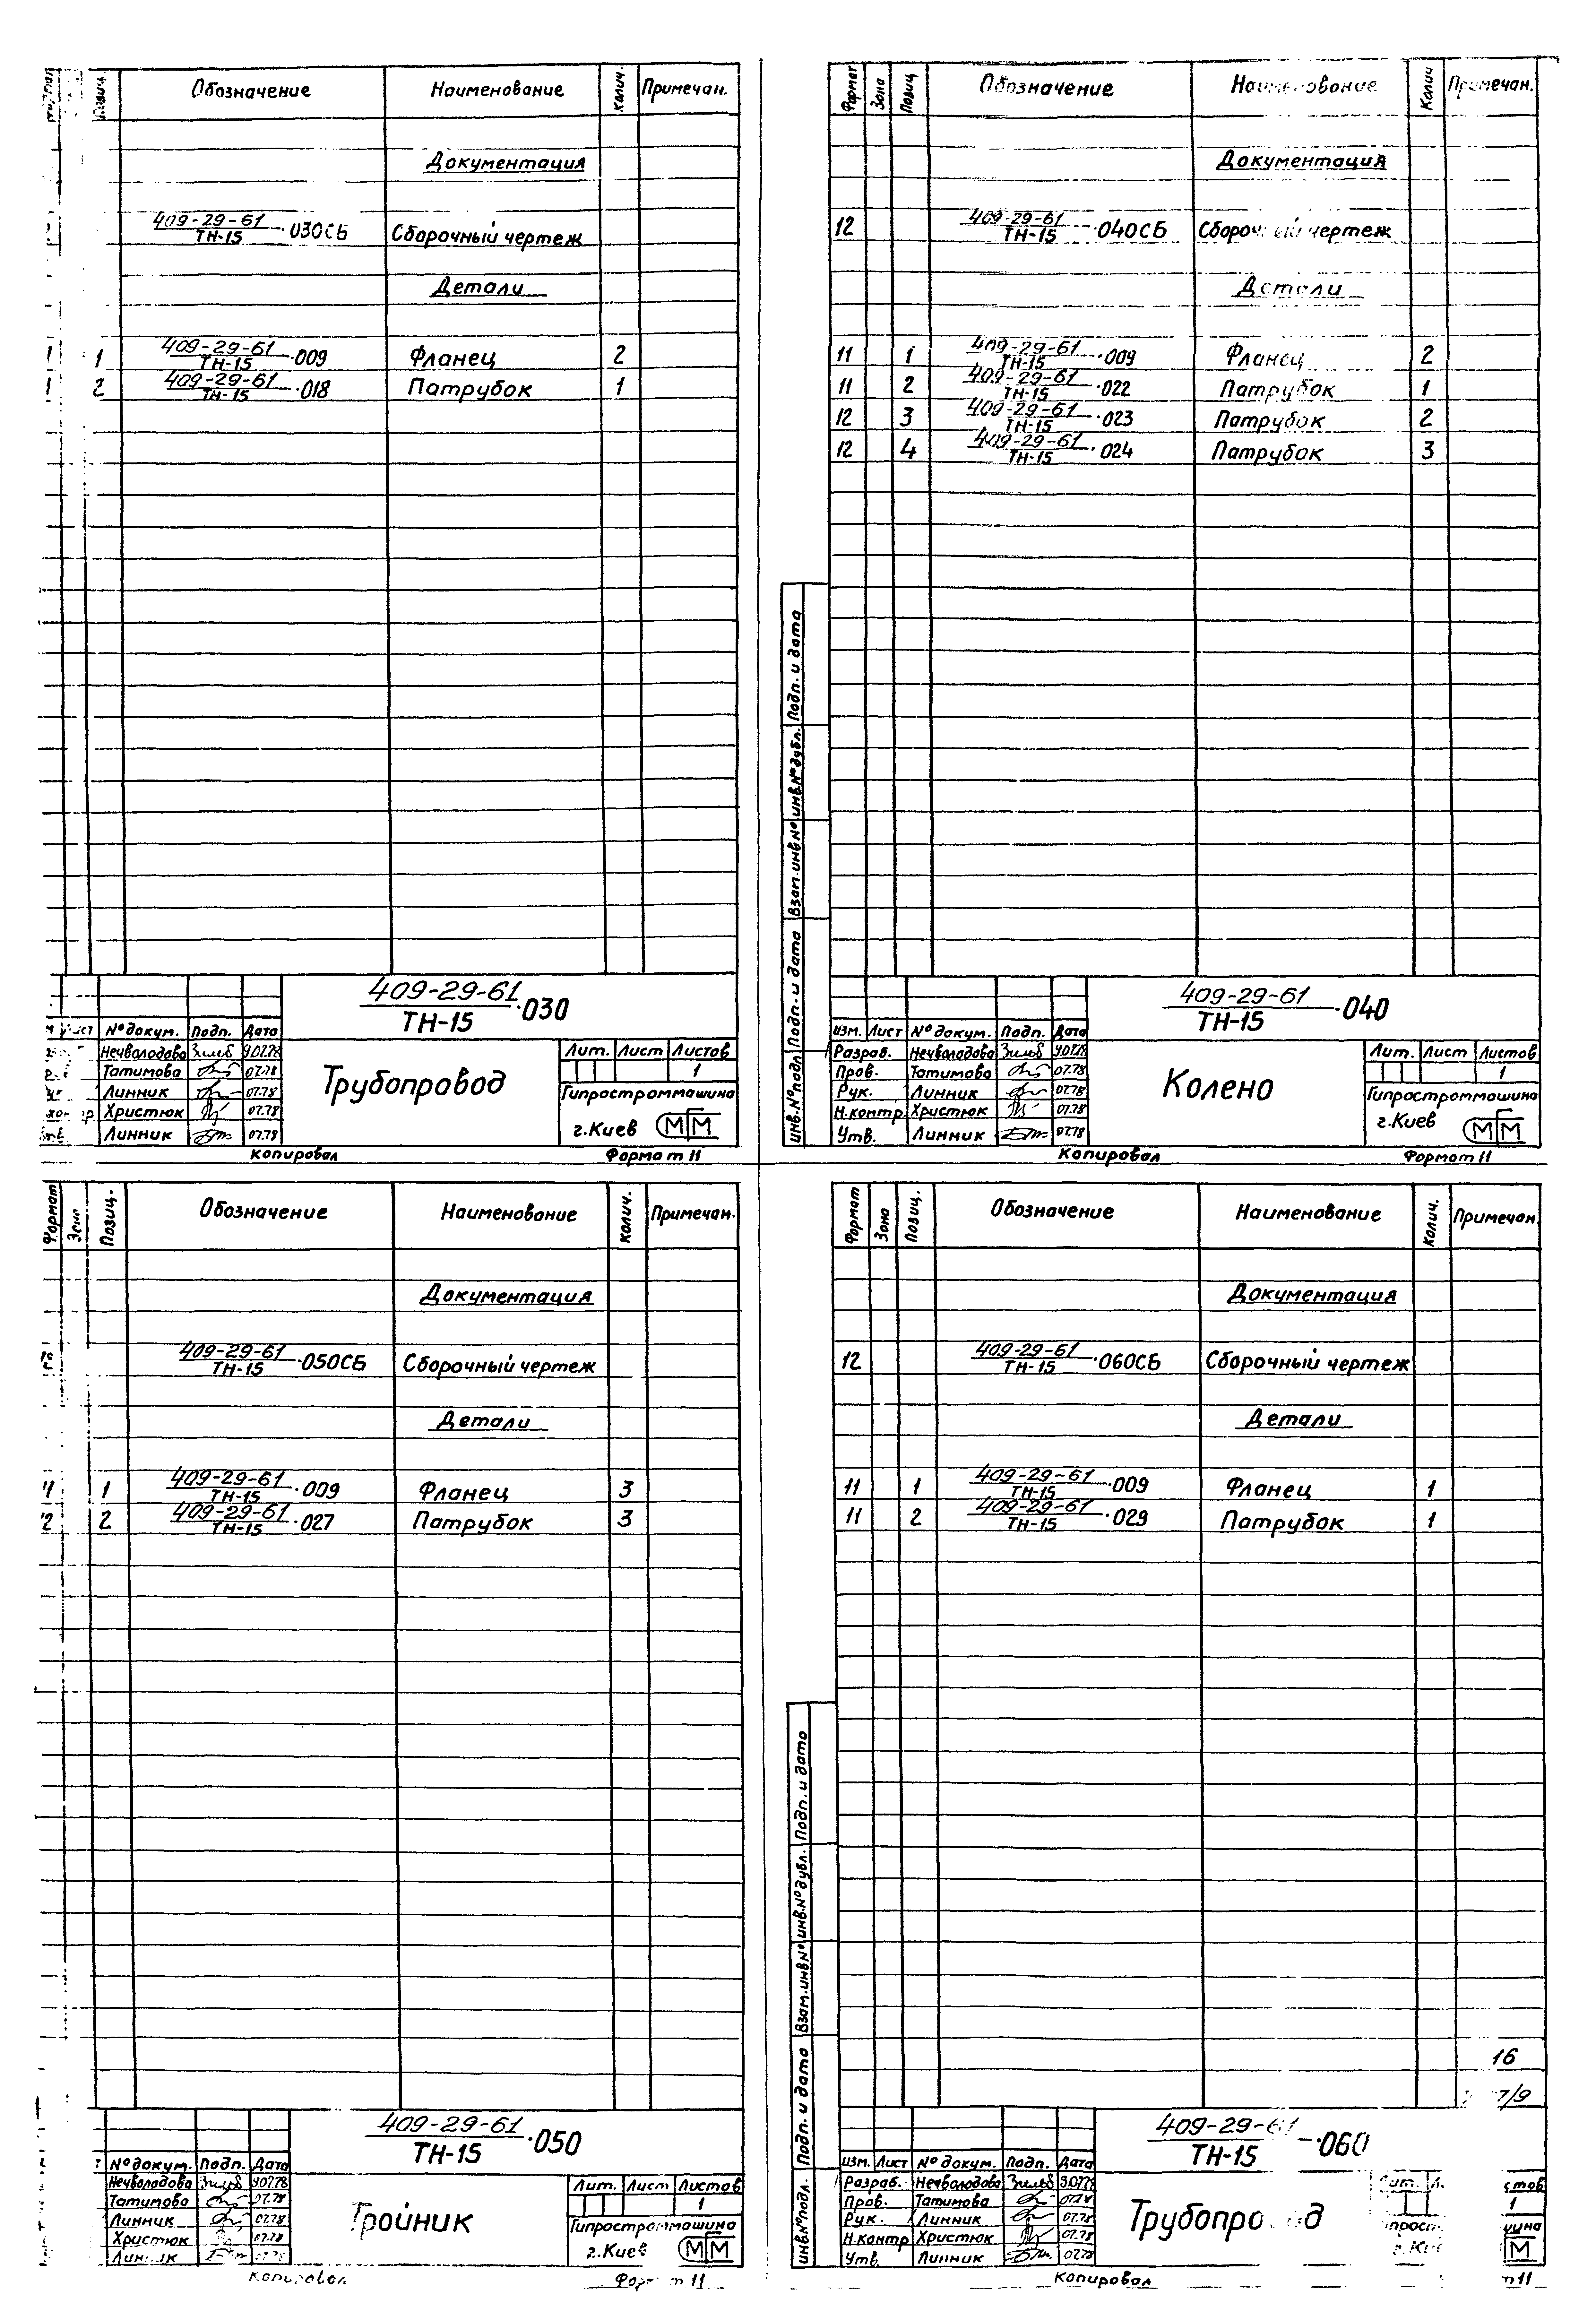 Позиц. Обозначение Наименование Колич. Примечан.
Документация
409-29-61/ТН-15 ·030СБ Сборочный чертеж
Детали
1 1 409-29-61/ТН-15 ·009 Фланец 2
1 2 409-29-61/ТН-15 ·018 Патрубок 1
409-29-61/ТН-15 ·030
Лист № докум. Подп. Дата
Нечволодова 9.07.78
Татимова 07.78
Линник 07.78
Христюк 07.78
Линник 07.78
Трубопровод
Лит. Лист Листов
1
Гипростроммашина
г.Киев
Копировал Формат 11
Формат Зона Позиц Обозначение Наименование Колич Примечан.
Документация
12 409-29-61/ТН-15 ·040СБ Сборочный чертеж
Детали
11 1 409-29-61/ТН-15 ·009 Фланец 2
11 2 409-29-61/ТН-15 ·022 Патрубок 1
12 3 409-29-61/ТН-15 ·023 Патрубок 2
12 4 409-29-61/ТН-15 ·024 Патрубок 3
Инв.№подл Подп. и дата Взам.инв№ Инв.№дубл. Подп. и дата
409-29-61/ТН-15 ·040
Изм. Лист № докум. Подп. Дата
Разраб. Нечволодова 9.07.78
Пров. Татимова 07.78
Рук. Линник 07.78
Н.контр. Христюк 07.78
Утв. Линник 07.78
Колено
Лит. Лист Листов
1
Гипростроммашина
г.Киев
Копировал Формат 11
Формат Позиц. Обозначение Наименование Колич. Примечан.
Документация
409-29-61/ТН-15 ·050СБ Сборочный чертеж
Детали
1 409-29-61/ТН-15 ·009 Фланец 3
2 409-29-61/ТН-15 ·027 Патрубок 3
409-29-61/ТН-15 ·050
№ докум. Подп. Дата
Нечволодова 9.07.78
Татимова 07.78
Линник 07.78
Христюк 07.78
Линник
Тройник
Лит. Лист Листов
1
Гипростроммашина
г.Киев
Копировал Формат 11
Формат Зона Позиц. Обозначение Наименование Колич. Примечан.
Документация
12 409-29-61/ТН-15 ·060СБ Сборочный чертеж
Детали
11 1 409-29-61/ТН-15 ·009 Фланец 1
11 2 409-29-61/ТН-15 ·029 Патрубок 1
16
7/9
Инв.№подл. Подп. и дата Взам.инв№ Инв.№дубл. Подп. и дата
409-29-61/ТН-15 ·060
Изм. Лист № докум. Подп. Дата
Разраб. Нечволодова 9.07.78
Пров. Татимова 07.78
Рук. Линник 07.78
Н.контр Христюк 07.78
Утв. Линник 07.78
Трубопровод
Лит.
1
Копировал 11